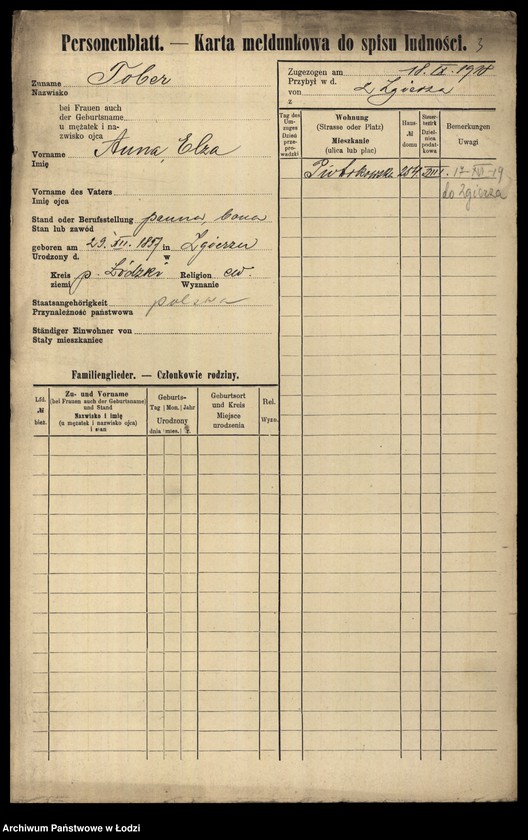 Personenblatt. — Karta meldunkowa do spisu ludności. 3
Zuname Tober
Nazwisko
bei Frauen auch
der Geburtsname
u mężatek i na-
zwisko ojca
Vorname Anna, Elza
Imię
Vorname des Vaters
Imię ojca
Stand oder Berufsstellung panna, bona
Stan lub zawód
geboren am 23. XII. 1897 in Zgierzu
Urodzony d. w
Kreis p. Łódzki Religion ew.
ziemi Wyznanie
Staatsangehörigkeit polska
Przynależność państwowa
Ständiger Einwohner von
Stały mieszkaniec
Familienglieder. — Członkowie rodziny.
Lfd. № bież.
Zu- und Vorname
(bei Frauen auch der Geburtsname)
und Stand
Nazwisko i imię
(u mężatek i nazwisko ojca)
i stan
Geburts-
Tag Mon. Jahr
Urodzony
dnia mies. r.
Geburtsort
und Kreis
Miejsce
urodzenia
Rel.
Wyzn.
Zugezogen am 18. IX. 1918
Przybył w d.
von z Zgierza
z
Tag des
Um-
zuges
Dzień
prze-
pro-
wadzki
Wohnung
(Strasse oder Platz)
Mieszkanie
(ulica lub plac)
Haus-
№
domu
Steuer-
bezirk
Dziel-
nica
podat-
kowa
Bemerkungen
Uwagi
Piotrkowska 254 XIII. 12-XII-19
do Zgierza
Archiwum Państwowe w Łodzi